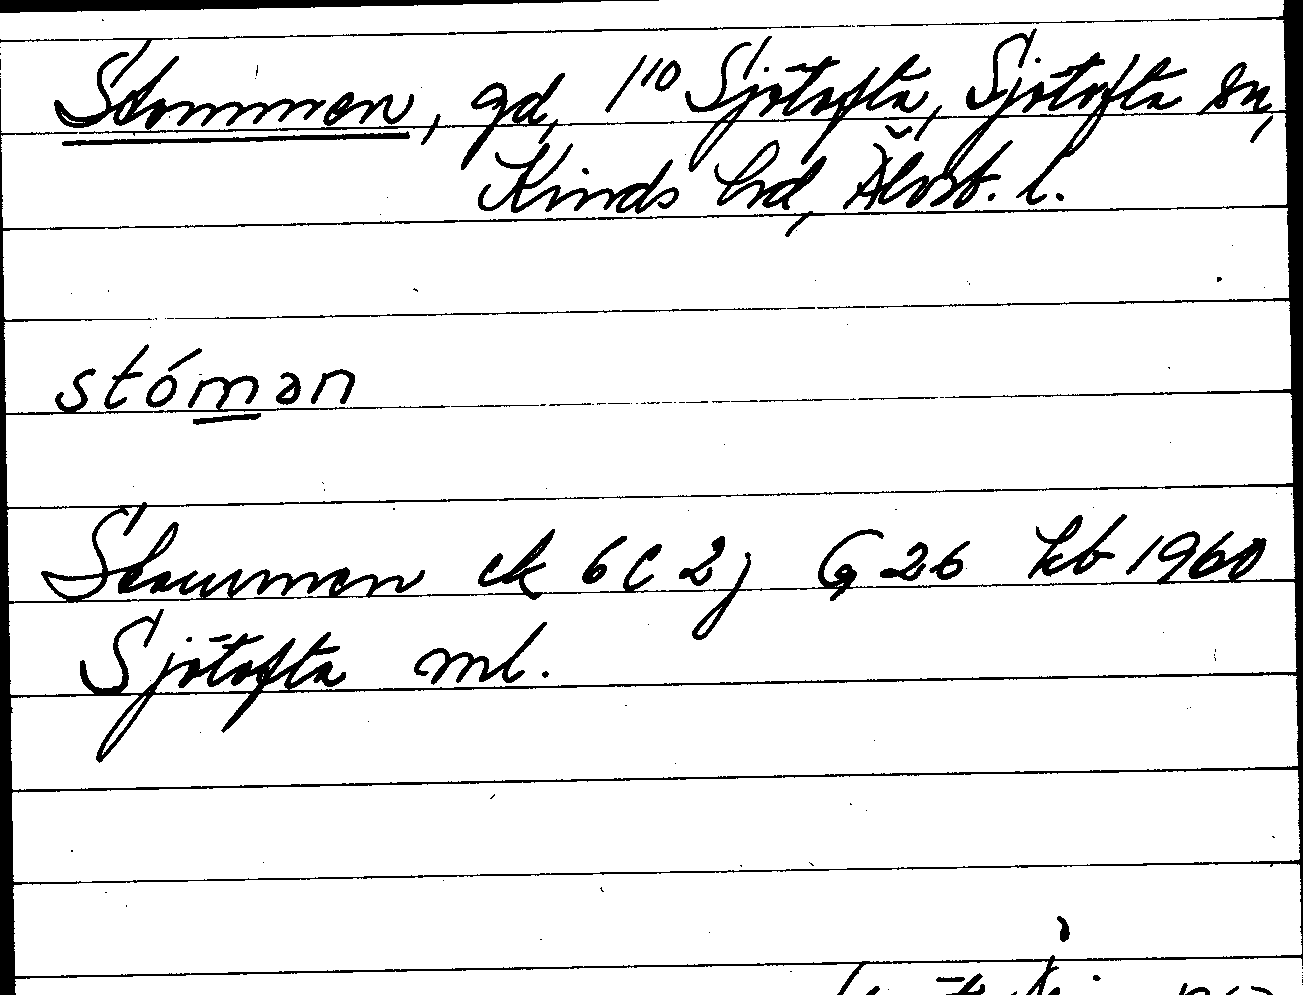 Stommen, gd, 1¹⁰ Sjötofta, Sjötofta sn,
Kinds hd, Älvsb. l.
stómən
Stommen ek 6C2j G26 kb 1960
Sjötofta ml.